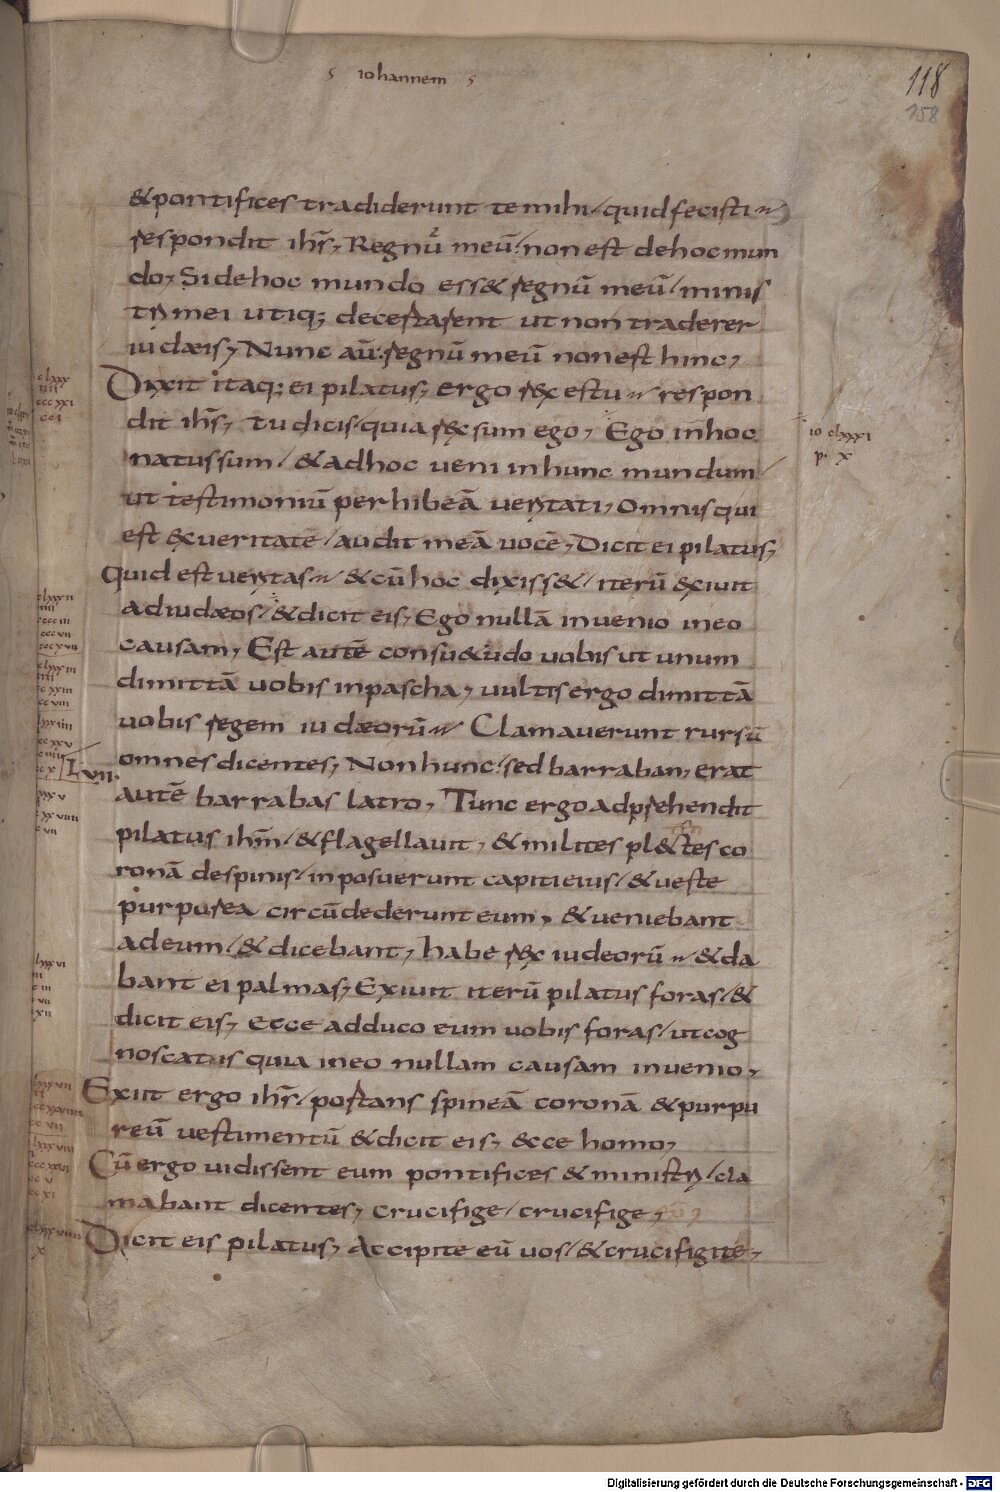 iohannem
118
158
& pontifices tradiderunt te mihi / quid fecisti
respondit ihs, Regnū meū / non est de hoc mun
do, Si de hoc mundo ess& regnū meū / minis
tri mei utiq; decertarent ut non traderer
iudæis, Nunc aū regnū meū non est hinc,
Dixit itaq; ei pilatus, ergo rex es tu respon
dit ihs, tu dicis / quia rex sum ego, Ego in hoc
natus sum / & ad hoc veni in hunc mundum
ut testimoniū perhibeā veritati, Omnis qui
est ex veritatē / audit meā vocē, Dicit ei pilatus,
Quid est veritas / & cū hoc dixiss& / iterū exivit
ad iudæos / & dicit eis, Ego nullā invenio in eo
causam, Est autē consu&udo vobis ut unum
dimittā vobis in pascha, vultis ergo dimittā
vobis regem iudæorū Clamaverunt rursū
omnes dicentes, Non hunc / sed barraban, erat
Lvii.
autē barrabas latro, Tunc ergo adprehendit
pilatus ihm / & flagellavit, & milites pl&tes co
ronā de spinis / inposuerunt capiti eius / & veste
purpurea circūdederunt eum, & veniebant
ad eum / & dicebant, habe rex iudeorū & da
bant ei palmas, Exivit iterū pilatus foras / &
dicit eis, Ecce adduco eum vobis foras / ut cog
noscatis quia in eo nullam causam invenio,
Exiit ergo ihs / portans spineā coronā & purpu
reū vestimentū & dicit eis, ecce homo,
Cū ergo vidissent eum pontifices & ministri / cla
mabant dicentes, crucifige / crucifige
Dicit eis pilatus, Accipite eū vos / & crucifigite,
io clxxxi
p. x
Digitalisierung gefördert durch die Deutsche Forschungsgemeinschaft - DFG